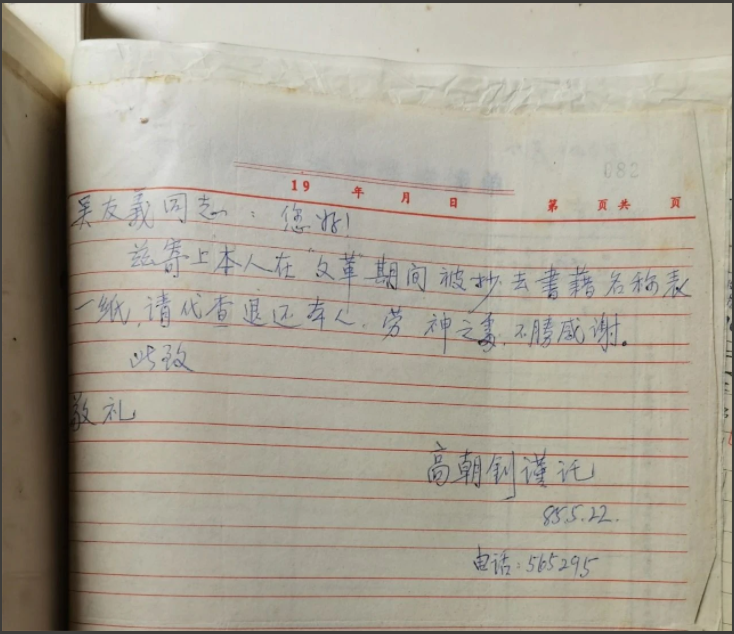 082
19 年 月 日 第 页共 页
吴友義同志：您好！
兹寄上本人在“文革”期间被抄去書籍名称表
一纸，请代查退还本人。劳神之處，不勝感谢。
此致
敬礼
高朝钊谨讬
85.5.22.
电话：565295